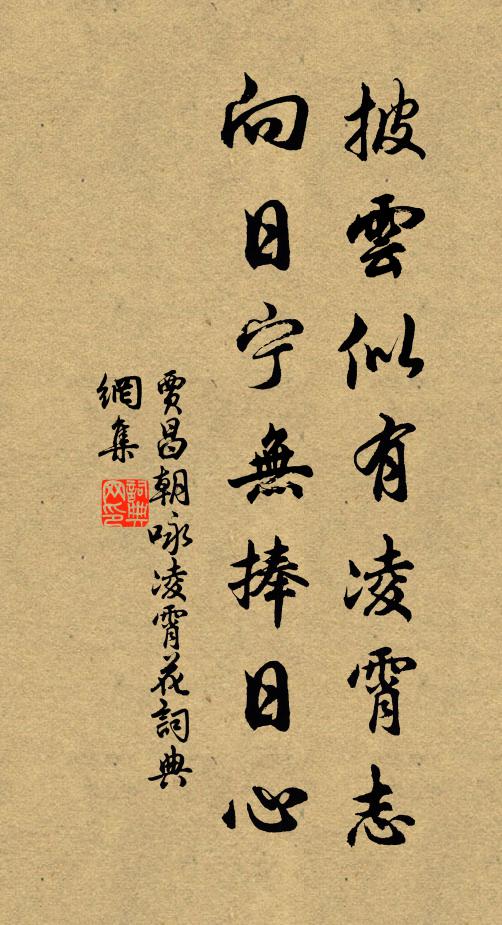 披雲似有凌霄志
向日宁無捧日心
賈昌朝咏凌霄花詞典
網集
詞典
网印